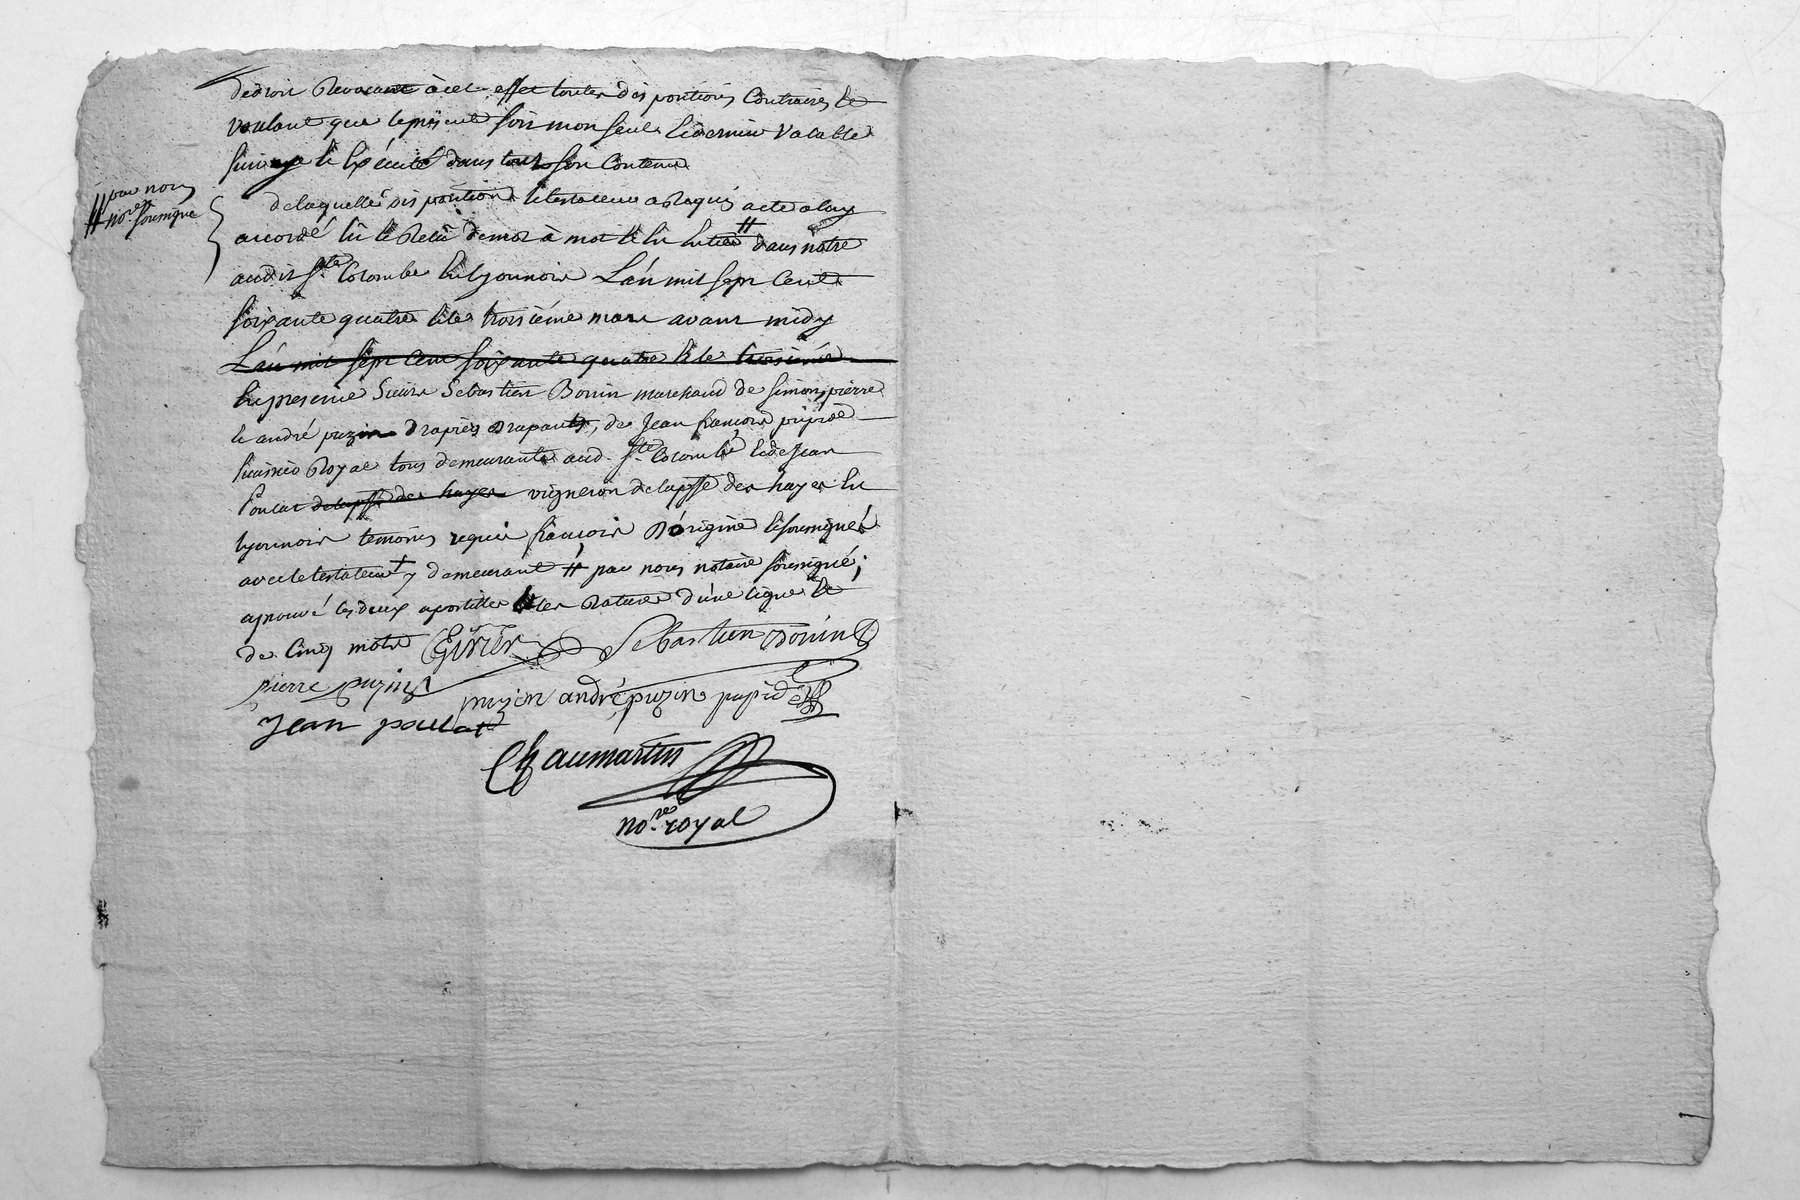 de droit Revocant à cet effet toutes dispositions Contraires Et
voulant que le présent soit mon seul Et dernier valable
suivy Et Exécuté dans tout son Contenu
par nous
no.re soussigné
de laquelle disposition le testateur a Requis acte a luy
accordé lû Et Relû de mot à mot Et En Entier # dans nôtre
audit S.te Colombe En lyonnois L'an mil sept Cent
soixante quatre Et le troisième mars avant midy
L'an mil sept Cent soixante quatre Et le troisième
En presence Sieurs Sebastien Bonin marchand de Simon, pierre
Et andré puzin Drapiers Drapants, de Jean françois pipidé
huissier Royal tous demeurants aud. S.te Colombe Et de Jean
Poulat de la psse des hayes vigneron de la psse des hayes En
lyonnois temoins requis françois D'origine Et soussignés
avec le testateur y demeurant # par nous notaire soussigné;
aprouvé les deux apostilles Et les Ratures d'une ligne Et
de Cinq mots Sebastien Bonin
pierre puzin puzin andré puzin
Jean poulat
Chaumartin
no.re royal